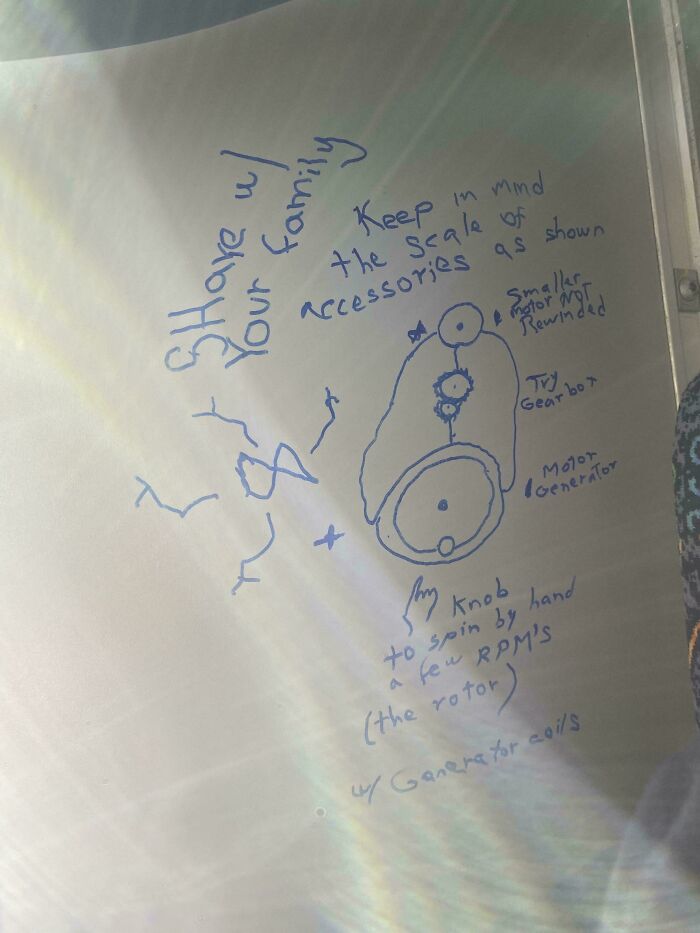 SHare w/
Your family
Keep in mind
the scale of
accessories as shown
Smaller
motor Not
Rewinded
Try
Gearbox
Motor
Generator
+
Knob
to spin by hand
a few RPM's
(the rotor)
w/ Generator coils